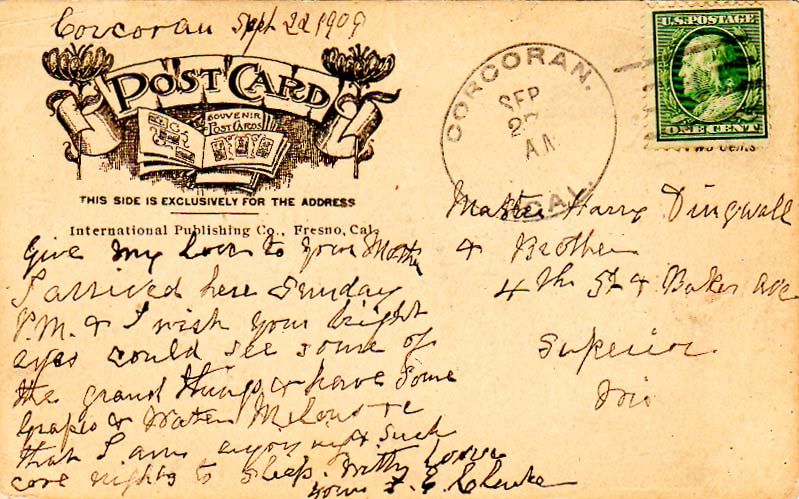 Corcoran Sept 2d 1909
POST CARD
SOUVENIR
POST CARDS
THIS SIDE IS EXCLUSIVELY FOR THE ADDRESS
International Publishing Co., Fresno, Cal.
CORCORAN.
SEP
AM
CAL.
U.S. POSTAGE
ONE CENT
Two Cents
Master Harry Dingwall
& Brother
4th St & Baker Ave
Superior
Wis
Give my Love to your Mother
I arrived here Sunday
P.M. & I wish your bright
eyes could see some of
the grand things & have Some
Grapes & Water Melons &c
that I am enjoying & such
cool nights to sleep. With Love
yours